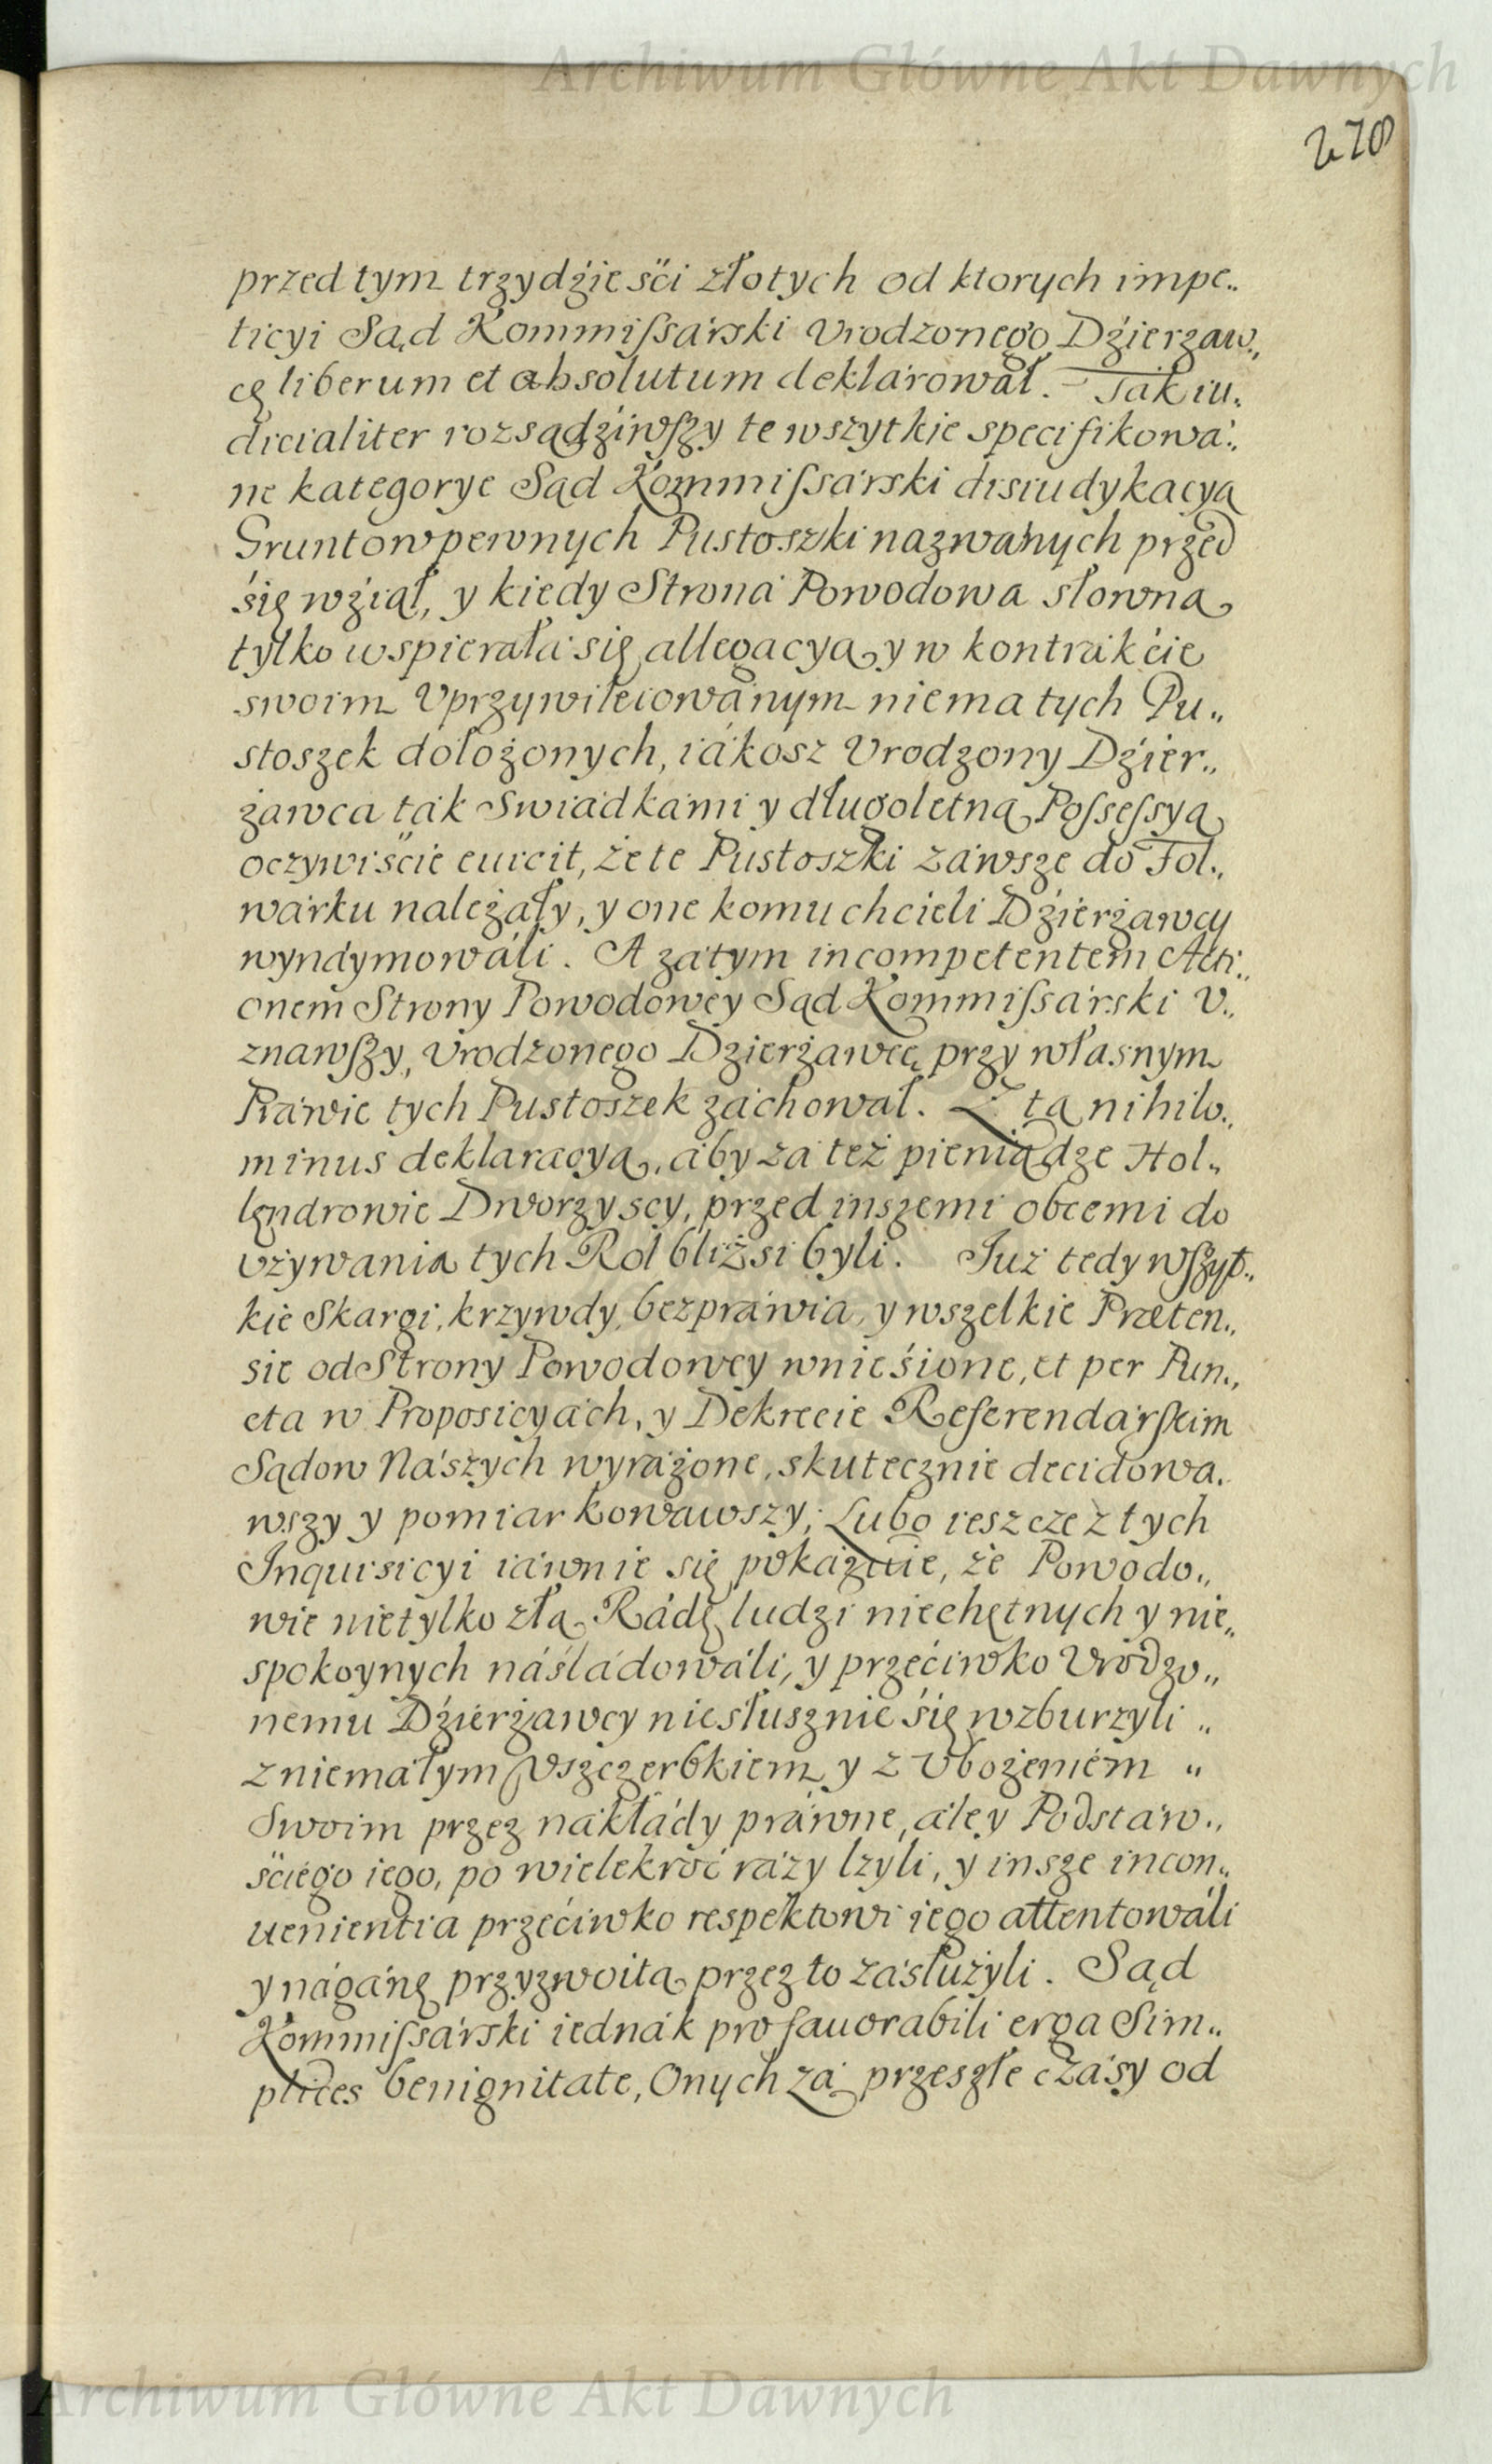 Archiwum Główne Akt Dawnych
270
przed tym trzydźieśći złotych od ktorych impe„
ticyi Sąd Kommiſsárski Vrodzonego Dźierzaw„
cę liberum et absolutum deklárował. Ták iu„
dicialiter rozsądźiwſzy te wszytkie specifikowá„
ne kategorye Sąd Kommiſsárski disiudykacyą
Gruntow pewnych Pustoszki nazwánych przed
śię wźiął, y kiedy Stroná Powodowa słowną
tylko wspierałá się allegacyą, y w kontrákćie
swoim Vprzywileiowánym niema tych Pu„
stoszek dołożonych, iákosz Vrodzony Dźier„
żawca ták Swiádkámi y długoletną Poſseſsyą
oczywiśćie euicit, że te Pustoszki záwsze do Fol„
wárku należáły, y one komu chcieli Dźierżawcy
wyndymowáli. A zátym incompetentem Acti„
onem Strony Powodowey Sąd Kommiſsárski V„
znawſzy, Vrodzonego Dzierżawcę przy własnym
Práwie tych Pustoszek záchował. Z tą nihilo„
minus deklaracyą, áby zá też pieniądze Hol„
lendrowie Dworzyscy, przed inszemi obcemi do
vżywania tych Rol bliżsi byli. Iuż tedy wſzyt„
kie Skargi, krzywdy, bezpráwia, y wszelkie Præten„
sie od Strony Powodowey wnieśione, et per Pun„
cta w Proposicyách, y Dekrecie Referendárſkim
Sądow Nászych wyráżone, skutecznie decidowa„
wszy y pomiarkowawszy; Lubo ieszcze z tych
Inquisicyi iáwnie się pokázuie, że Powodo„
wie nietylko złą Rádę ludzi niechętnych y nie„
spokoynych náśládowáli, y przećiwko Vrodzo„
nemu Dźierżawcy niesłusznie śię wzburzyli „
z niemáłym Vszczerbkiem y z Vbożeniem „
Swoim przez nakłády práwne, ále y Podstáw„
śćiego iego, po wielekroć rázy lżyli, y insze incon„
uenientiá przećiwko respektowi iego attentowáli
y nágánę przyzwoitą przez to zásłużyli. Sąd
Kommiſsárski iednák pro fauorabili erga Sim„
plices benignitate, Onych zá przeszłe czásy od
Archiwum Główne Akt Dawnych